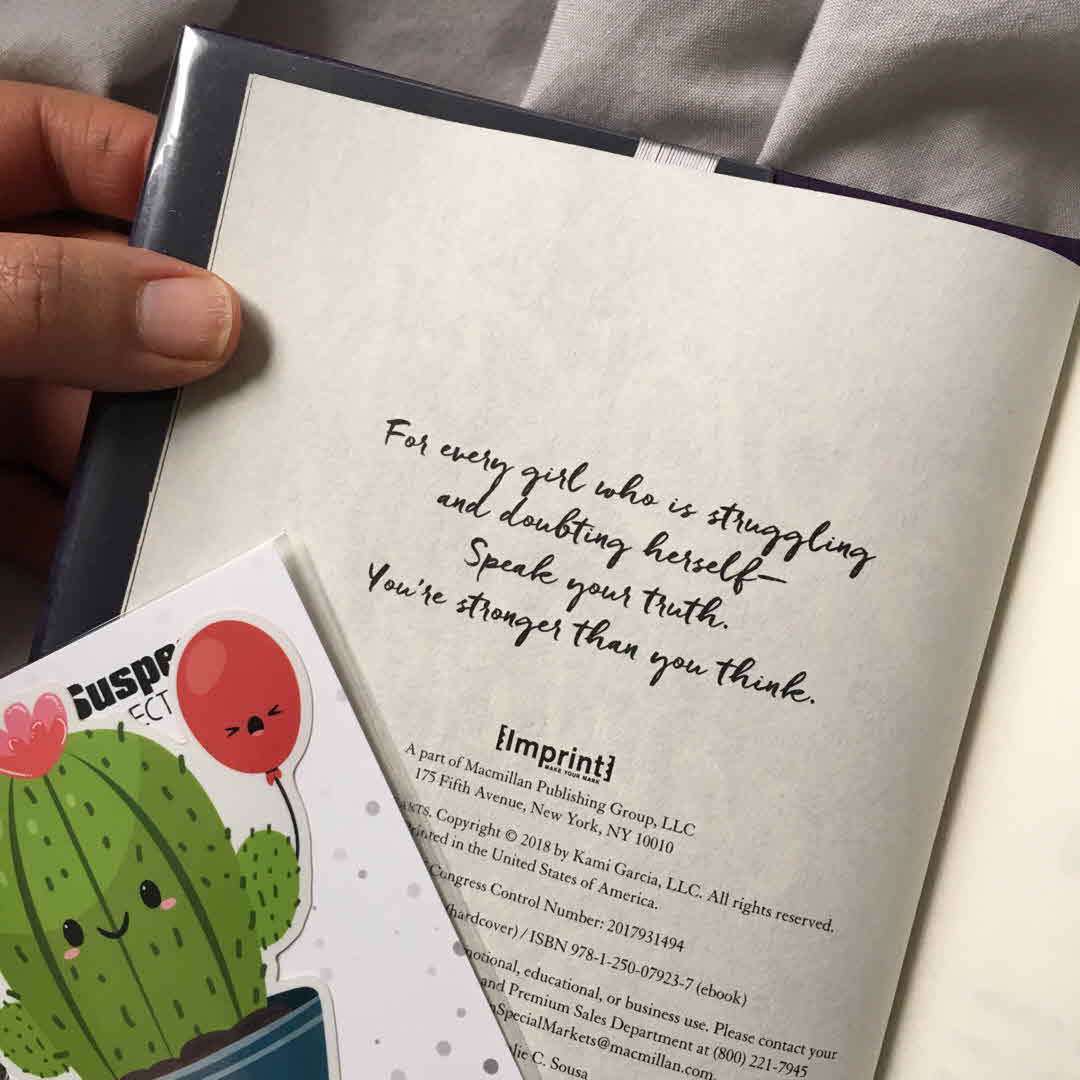 For every girl who is struggling
and doubting herself—
Speak your truth.
You're stronger than you think.
[Imprint]
MAKE YOUR MARK
A part of Macmillan Publishing Group, LLC
175 Fifth Avenue, New York, NY 10010
Copyright © 2018 by Kami Garcia, LLC. All rights reserved.
in the United States of America.
Congress Control Number: 2017931494
(hardcover) / ISBN 978-1-250-07923-7 (ebook)
educational, or business use. Please contact your
and Premium Sales Department at (800) 221-7945
SpecialMarkets@macmillan.com.
C. Sousa